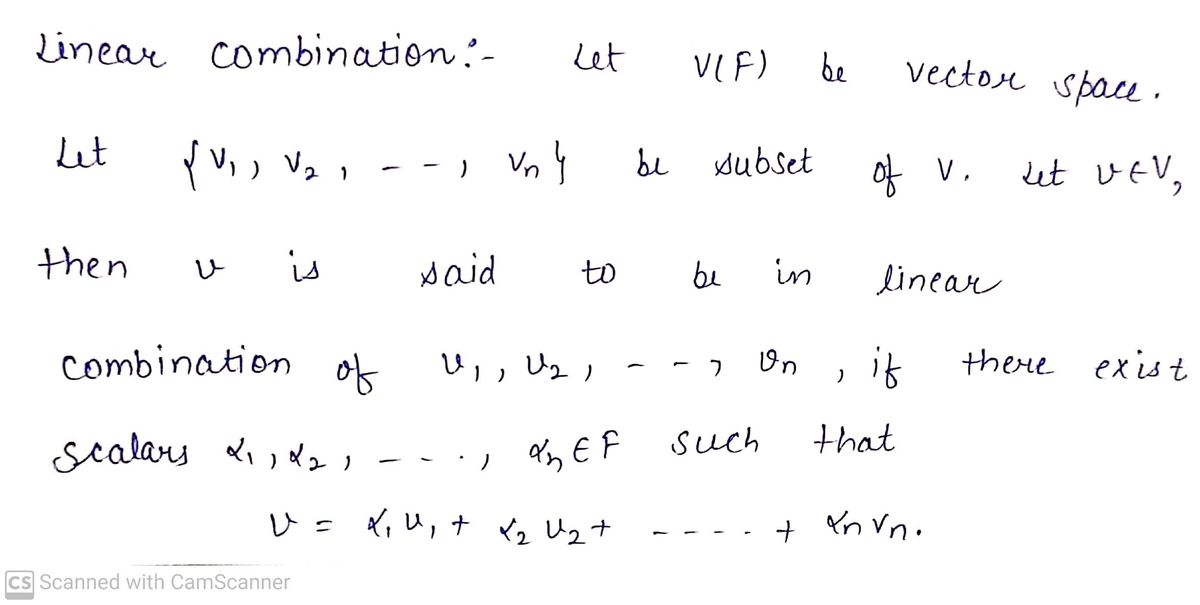 Linear combination:- Let V(F) be vector space.
Let {v₁, v₂, - - , vₙ} be subset of V. Let v∈V,
then v is said to be in linear
combination of v₁, v₂, - - , vₙ, if there exist
scalars α₁, α₂, - - ., αₙ ∈ F such that
v = α₁v₁ + α₂v₂ + - - - - + αₙvₙ.
CS Scanned with CamScanner